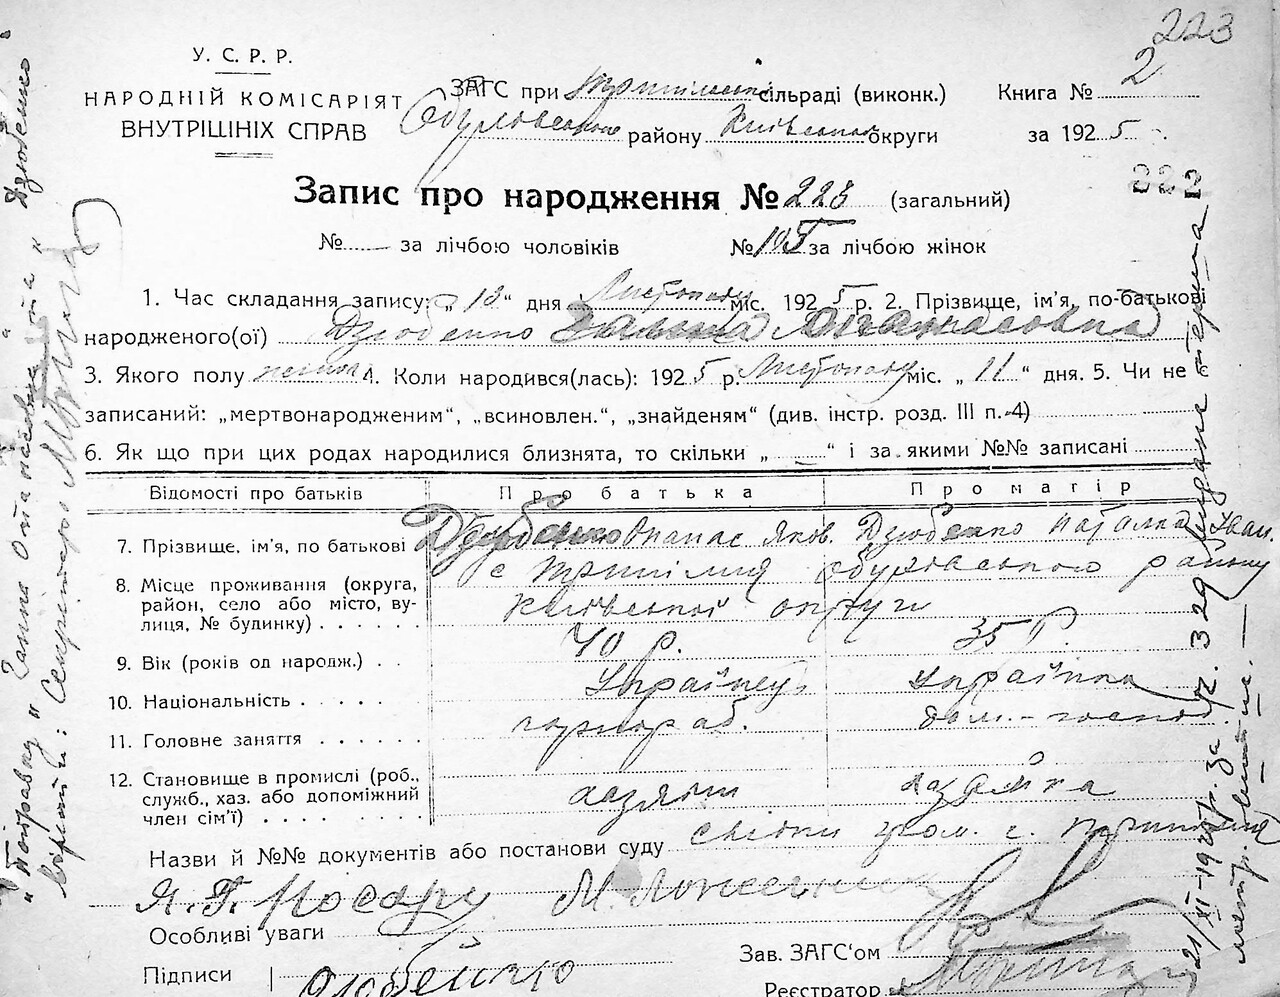 223
У. С. Р. Р.
НАРОДНІЙ КОМІСАРІЯТ
ВНУТРІШНІХ СПРАВ
ЗАГС при сільраді (виконк.) Книга № 2
району Київської округи за 1925
Запис про народження № 223 (загальний)
222
№ за лічбою чоловіків № 105 за лічбою жінок
1. Час складання запису: „ 18 “ дня Листопаду міс. 1925 р. 2. Прізвище, ім'я, по-батькові
народженого(ої) Дзюбенко Опанасовна
3. Якого полу 4. Коли народився(лась): 1925 р. Листопаду міс. „ 11 “ дня. 5. Чи не є
записаний: „мертвонародженим“, „всиновлен.“, „знайденям“ (див. інстр. розд. III п. 4)
6. Як що при цих родах народилися близнята, то скільки „ “ і за якими №№ записані
Відомості про батьків Про батька Про матір
7. Прізвище, ім'я, по батькові Дзюбенко Опанас Яков. Дзюбенко Наталка Іван.
8. Місце проживання (округа, с Трипілля Обухівського району
район, село або місто, ву- Київської округи
лиця, № будинку)
9. Вік (років од народж.) 40 р. 35 р.
10. Національність Українец Українка
11. Головне заняття чорнораб. дом.-господ
12. Становище в промислі (роб.,
служб., хаз. або допоміжний хазяїн хазяйка
член сім'ї)
Назви й №№ документів або постанови суду свідки гром. с. Трипілля
Я. Г. Носару М.
Особливі уваги
Зав. ЗАГС'ом
Підписи
Реєстратор
"Поправку " Ганна Опанасовна " та " Дзюбенко "
вірний: Секретарь
21/XI-1925 р. за Ч. 329 Видане
метр. витпис.